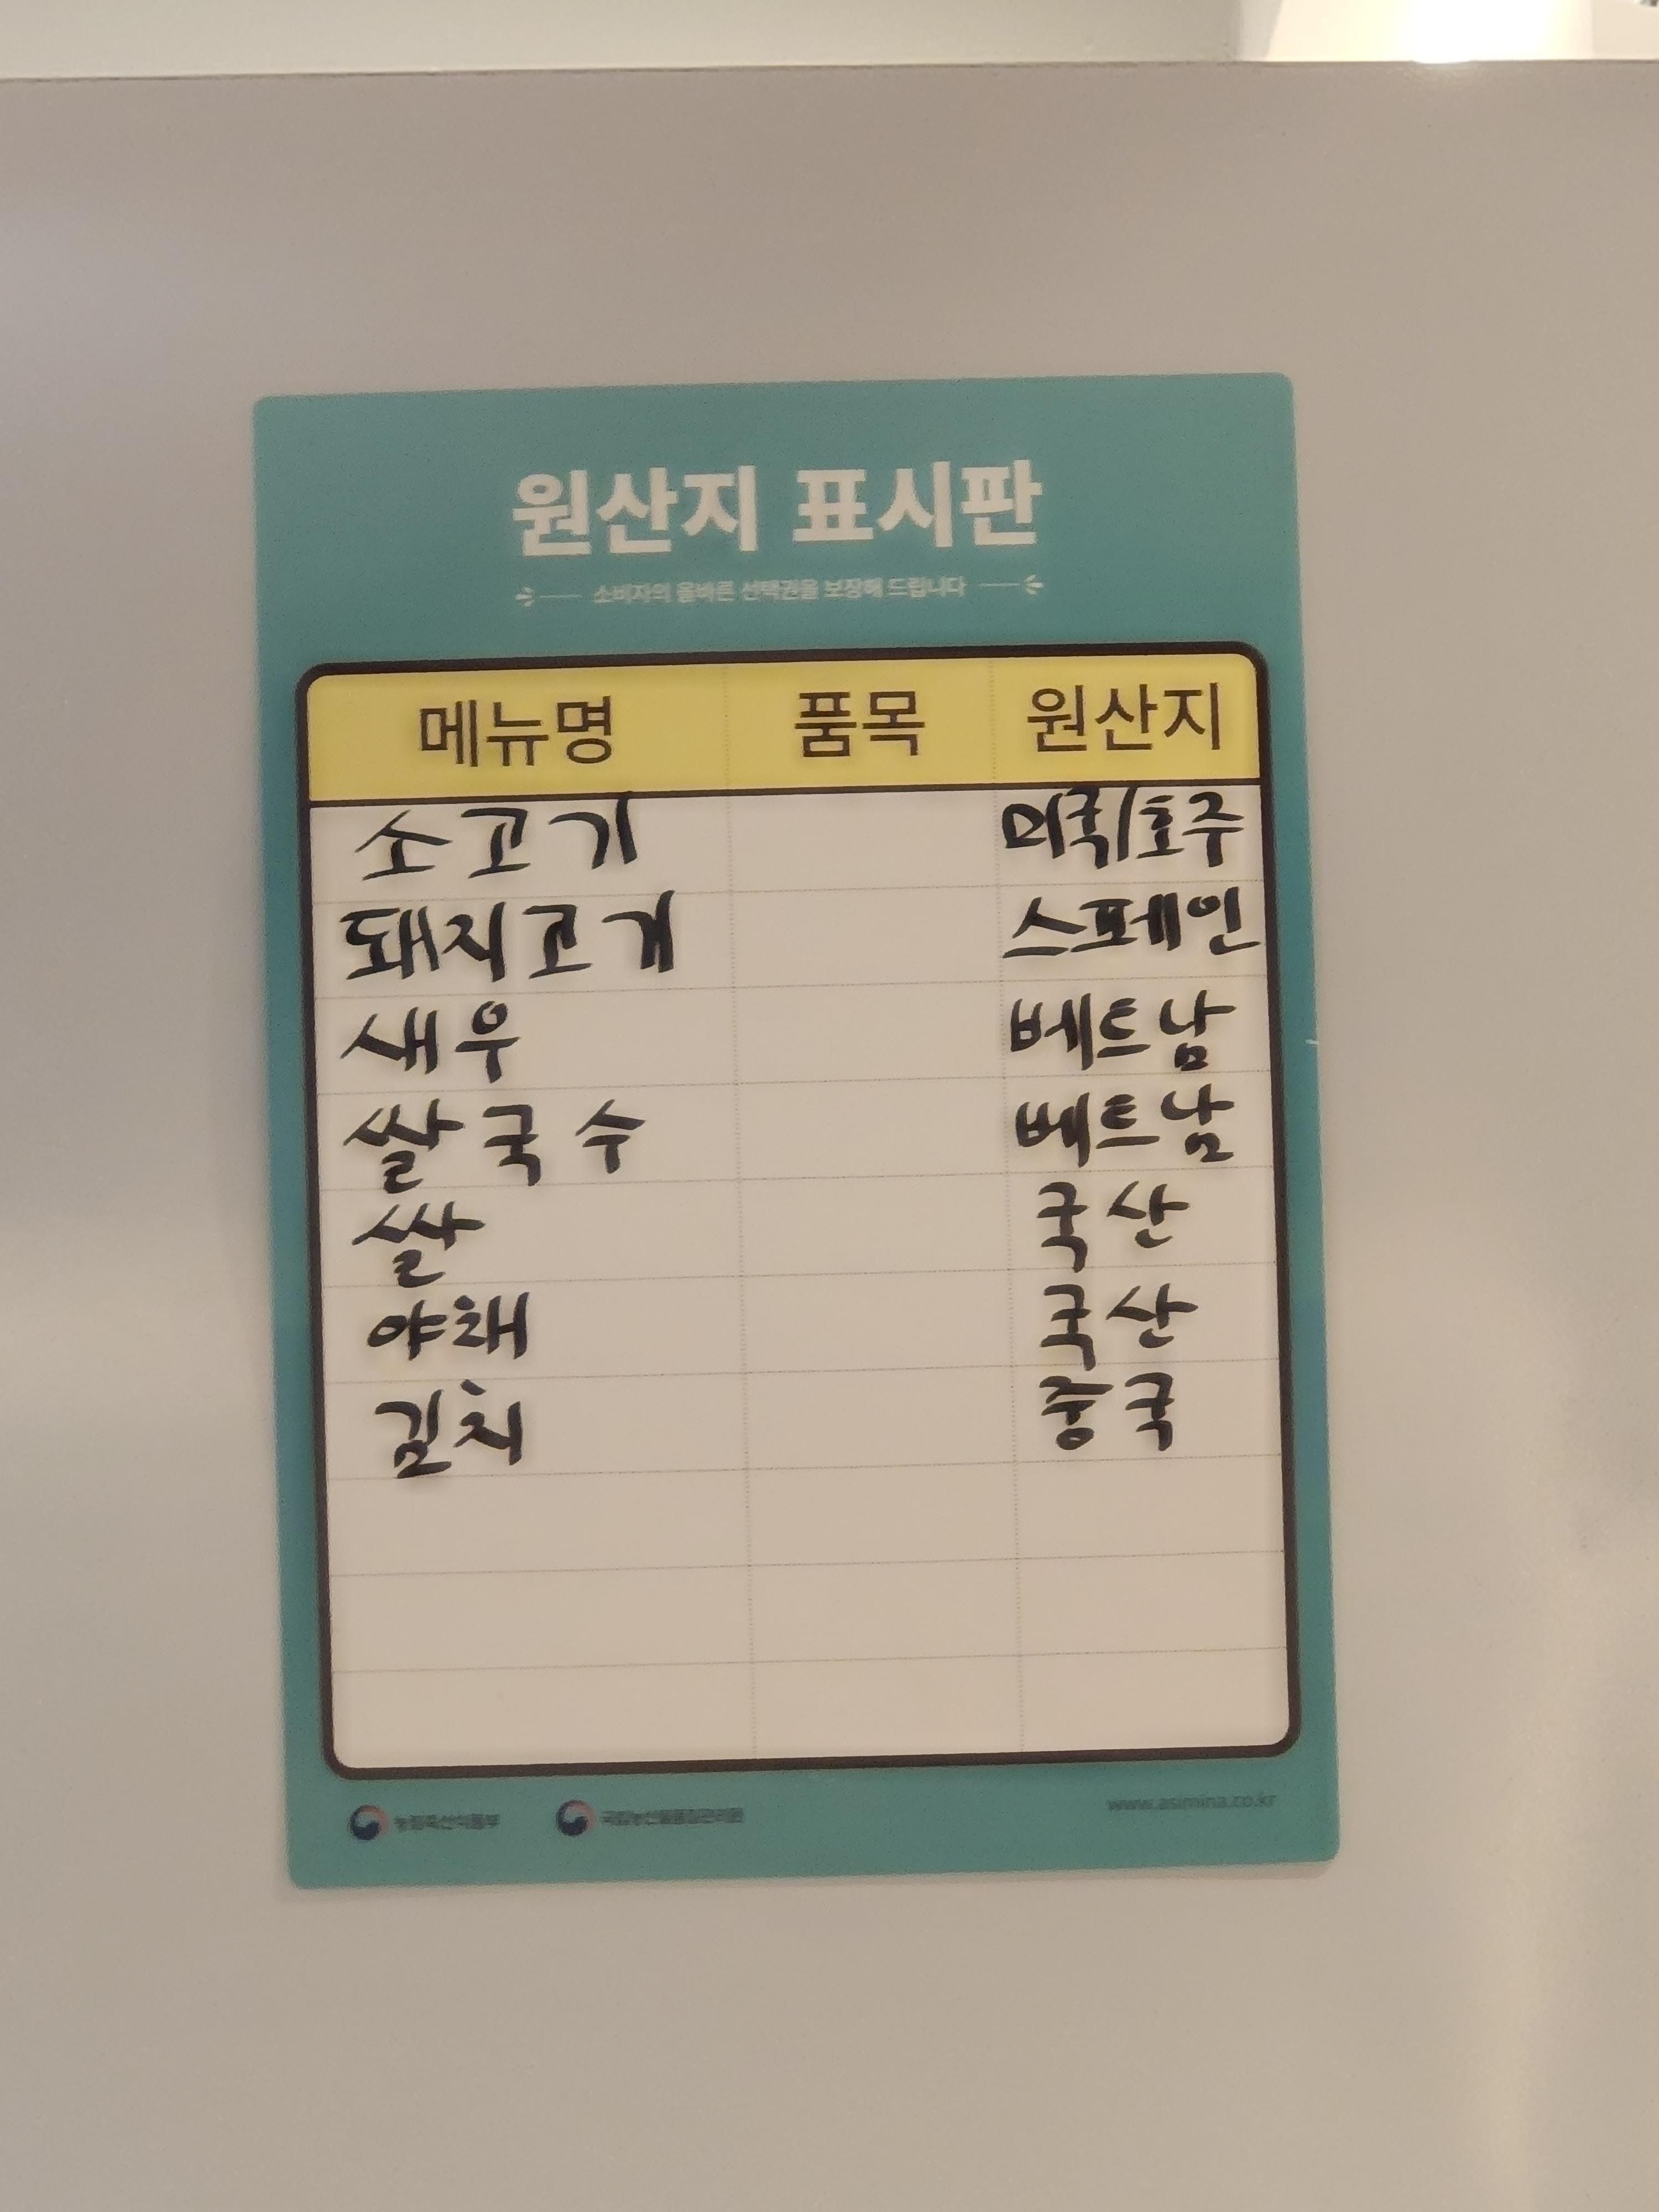 원산지 표시판
소비자의 올바른 선택권을 보장해 드립니다
메뉴명 품목 원산지
소고기 미국/호주
돼지고기 스페인
새우 베트남
쌀국수 베트남
쌀 국산
야채 국산
김치 중국
농림축산식품부 국립농산물품질관리원 www.asimina.co.kr